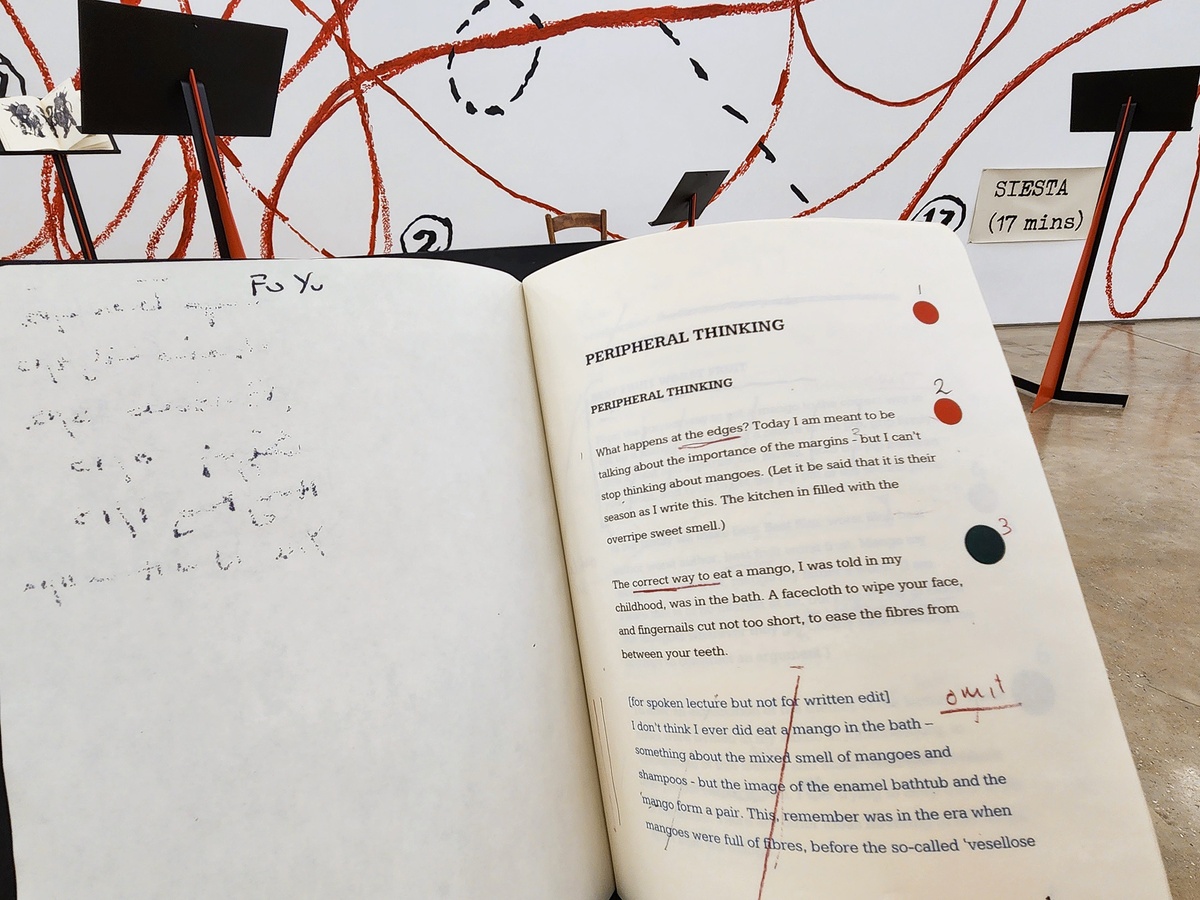 2
17
SIESTA
(17 mins)
Fu Yu
1
2
3
PERIPHERAL THINKING
PERIPHERAL THINKING
What happens at the edges? Today I am meant to be
talking about the importance of the margins - but I can't
stop thinking about mangoes. (Let it be said that it is their
season as I write this. The kitchen in filled with the
overripe sweet smell.)
The correct way to eat a mango, I was told in my
childhood, was in the bath. A facecloth to wipe your face,
and fingernails cut not too short, to ease the fibres from
between your teeth.
[for spoken lecture but not for written edit]
omit
I don't think I ever did eat a mango in the bath –
something about the mixed smell of mangoes and
shampoos - but the image of the enamel bathtub and the
mango form a pair. This, remember was in the era when
mangoes were full of fibres, before the so-called 'vesellose